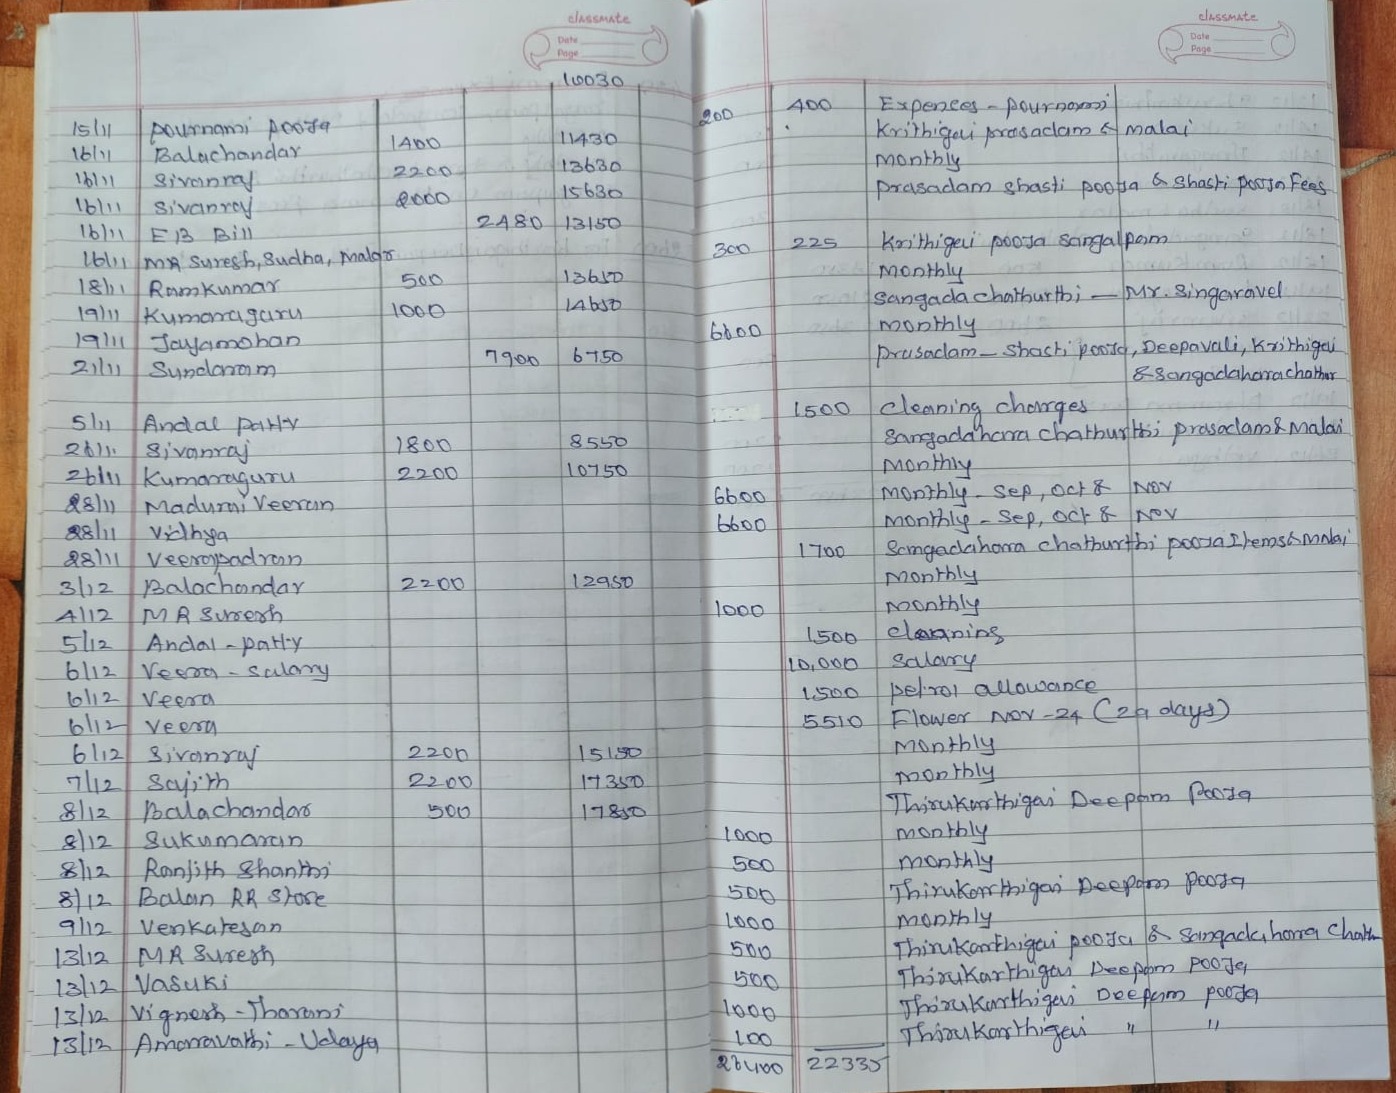 classmate
Date
Page
10030
15/11 pournami pooja
16/11 Balachandar 1400 11430
16/11 Sivanraj 2200 13630
16/11 Sivanraj 2000 15630
16/11 EB Bill 2480 13150
16/11 MR Suresh, Sudha, Malar
18/11 Ramkumar 500 13650
19/11 Kumaraguru 1000 14650
19/11 Jayamohan
21/11 Sundaram 7900 6750
5/11 Andal patty
26/11 Sivanraj 1800 8550
26/11 Kumaraguru 2200 10750
28/11 Madurai Veeran
28/11 Vidhya
28/11 Veerapadran
3/12 Balachandar 2200 12950
4/12 MR Suresh
5/12 Andal - patty
6/12 Veera - salary
6/12 Veera
6/12 Veera
6/12 Sivanraj 2200 15150
7/12 Sajith 2200 17350
8/12 Balachandar 500 17850
8/12 Sukumaran
8/12 Ranjith Shanthi
8/12 Balan RR Store
9/12 Venkatesan
13/12 MR Suresh
13/12 Vasuki
13/12 Vignesh - Tharani
13/12 Amaravathi - Udaya
classmate
Date
Page
200 400 Expences - pournami
Krithigai prasadam & malai
monthly
prasadam shasti pooja & Shasti pooja Fees
300 225 Krithigai pooja sangalpam
monthly
sangada chathurthi - Mr. Singaravel
6600 monthly
prasadam - Shasti pooja, Deepavali, Krithigai
& Sangadahara chathur
1500 cleaning charges
Sangadahara chathurthi prasadam & Malai
monthly
6600 monthly - Sep, Oct & Nov
6600 monthly - Sep, Oct & Nov
1700 Sangadahara chathurthi pooja Items & malai
monthly
1000 monthly
1500 cleaning
10,000 salary
1500 petrol allowance
5510 Flower Nov-24 (29 days)
monthly
monthly
ThiruKarthigai Deepam Pooja
1000 monthly
500 monthly
500 ThiruKarthigai Deepam pooja
1000 monthly
500 ThiruKarthigai pooja & Sangadahara Chathu
500 ThiruKarthigai Deepam pooja
1000 ThiruKarthigai Deepam pooja
100 ThiruKarthigai " "
26400 22335